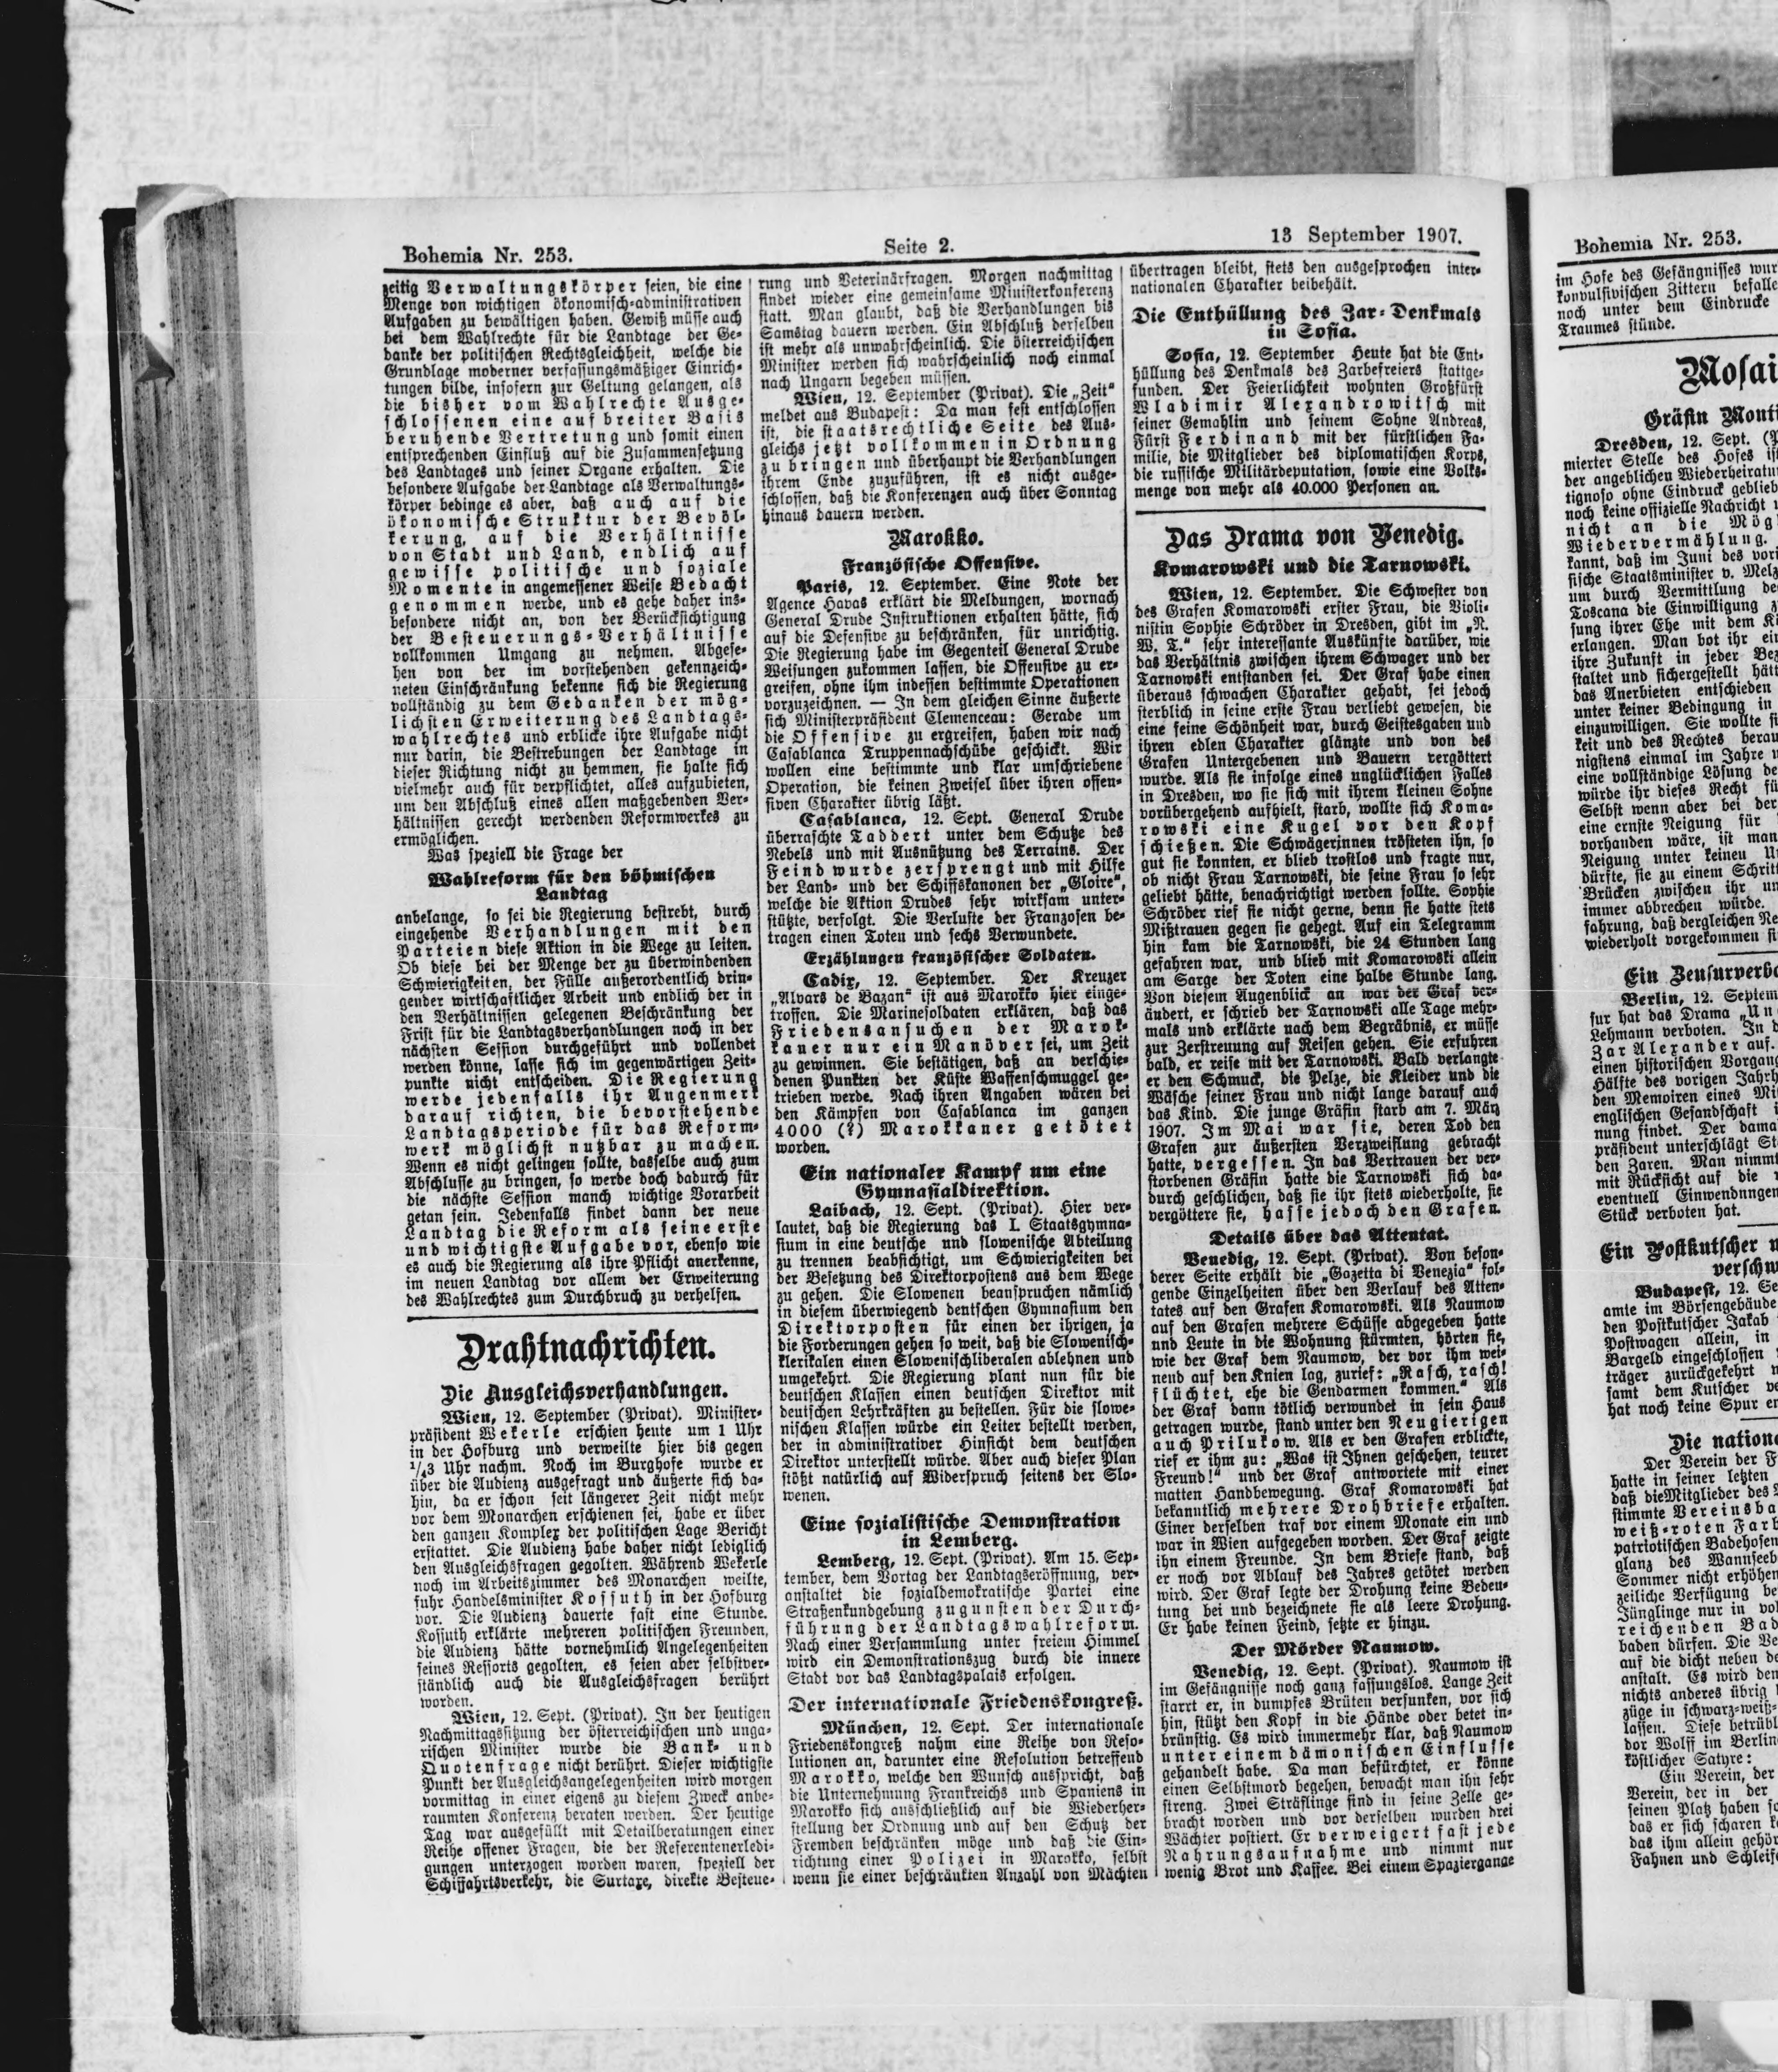 Bohemia Nr. 253.
Seite 2.
13 September 1907.
zeitig Verwaltungskörper seien, die eine
Menge von wichtigen ökonomisch-administrativen
Aufgaben zu bewältigen haben. Gewiß müsse auch
bei dem Wahlrechte für die Landtage der Ge-
danke der politischen Rechtsgleichheit, welche die
Grundlage moderner verfassungsmäßiger Einrich-
tungen bilde, insofern zur Geltung gelangen, als
die bisher vom Wahlrechte Ausge-
schlossenen eine auf breiter Basis
beruhende Vertretung und somit einen
entsprechenden Einfluß auf die Zusammensetzung
des Landtages und seiner Organe erhalten. Die
besondere Aufgabe der Landtage als Verwaltungs-
körper bedinge es aber, daß auch auf die
ökonomische Struktur der Bevöl-
kerung, auf die Verhältnisse
von Stadt und Land, endlich auf
gewisse politische und soziale
Momente in angemessener Weise Bedacht
genommen werde, und es gehe daher ins-
besondere nicht an, von der Berücksichtigung
der Besteuerungs-Verhältnisse
vollkommen Umgang zu nehmen. Abgese-
hen von der im vorstehenden gekennzeich-
neten Einschränkung bekenne sich die Regierung
vollständig zu dem Gedanken der mög-
lichsten Erweiterung des Landtags-
wahlrechtes und erblicke ihre Aufgabe nicht
nur darin, die Bestrebungen der Landtage in
dieser Richtung nicht zu hemmen, sie halte sich
vielmehr auch für verpflichtet, alles aufzubieten,
um den Abschluß eines allen maßgebenden Ver-
hältnissen gerecht werdenden Reformwerkes zu
ermöglichen.
Was speziell die Frage der
Wahlreform für den böhmischen
Landtag
anbelange, so sei die Regierung bestrebt, durch
eingehende Verhandlungen mit den
Parteien diese Aktion in die Wege zu leiten.
Ob diese bei der Menge der zu überwindenden
Schwierigkeiten, der Fülle außerordentlich drin-
gender wirtschaftlicher Arbeit und endlich der in
den Verhältnissen gelegenen Beschränkung der
Frist für die Landtagsverhandlungen noch in der
nächsten Session durchgeführt und vollendet
werden könne, lasse sich im gegenwärtigen Zeit-
punkte nicht entscheiden. Die Regierung
werde jedenfalls ihr Augenmerk
darauf richten, die bevorstehende
Landtagsperiode für das Reform-
werk möglichst nutzbar zu machen.
Wenn es nicht gelingen sollte, dasselbe auch zum
Abschlusse zu bringen, so werde doch dadurch für
die nächste Session manch wichtige Vorarbeit
getan sein. Jedenfalls findet dann der neue
Landtag die Reform als seine erste
und wichtigste Aufgabe vor, ebenso wie
es auch die Regierung als ihre Pflicht anerkenne,
im neuen Landtag vor allem der Erweiterung
des Wahlrechtes zum Durchbruch zu verhelfen.
Drahtnachrichten.
Die Ausgleichsverhandlungen.
Wien, 12. September (Privat). Minister-
präsident Wekerle erschien heute um 1 Uhr
in der Hofburg und verweilte hier bis gegen
1/43 Uhr nachm. Noch im Burghofe wurde er
über die Audienz ausgefragt und äußerte sich da-
hin, da er schon seit längerer Zeit nicht mehr
vor dem Monarchen erschienen sei, habe er über
den ganzen Komplex der politischen Lage Bericht
erstattet. Die Audienz habe daher nicht lediglich
den Ausgleichsfragen gegolten. Während Wekerle
noch im Arbeitszimmer des Monarchen weilte,
fuhr Handelsminister Kossuth in der Hofburg
vor. Die Audienz dauerte fast eine Stunde.
Kossuth erklärte mehreren politischen Freunden,
die Audienz hätte vornehmlich Angelegenheiten
seines Ressorts gegolten, es seien aber selbstver-
ständlich auch die Ausgleichsfragen berührt
worden.
Wien, 12. Sept. (Privat). In der heutigen
Nachmittagssitzung der österreichischen und unga-
rischen Minister wurde die Bank- und
Quotenfrage nicht berührt. Dieser wichtigste
Punkt der Ausgleichsangelegenheiten wird morgen
vormittag in einer eigens zu diesem Zweck anbe-
raumten Konferenz beraten werden. Der heutige
Tag war ausgefüllt mit Detailberatungen einer
Reihe offener Fragen, die der Referentenerledi-
gungen unterzogen worden waren, speziell der
Schiffahrtsverkehr, die Surtaxe, direkte Besteue-
rung und Veterinärfragen. Morgen nachmittag
findet wieder eine gemeinsame Ministerkonferenz
statt. Man glaubt, daß die Verhandlungen bis
Samstag dauern werden. Ein Abschluß derselben
ist mehr als unwahrscheinlich. Die österreichischen
Minister werden sich wahrscheinlich noch einmal
nach Ungarn begeben müssen.
Wien, 12. September (Privat). Die „Zeit"
meldet aus Budapest: Da man fest entschlossen
ist, die staatsrechtliche Seite des Aus-
gleichs jetzt vollkommen in Ordnung
zu bringen und überhaupt die Verhandlungen
ihrem Ende zuzuführen, ist es nicht ausge-
schlossen, daß die Konferenzen auch über Sonntag
hinaus dauern werden.
Marokko.
Französische Offensive.
Paris, 12. September. Eine Note der
Agence Havas erklärt die Meldungen, wornach
General Drude Instruktionen erhalten hätte, sich
auf die Defensive zu beschränken, für unrichtig.
Die Regierung habe im Gegenteil General Drude
Weisungen zukommen lassen, die Offensive zu er-
greifen, ohne ihm indessen bestimmte Operationen
vorzuzeichnen. — In dem gleichen Sinne äußerte
sich Ministerpräsident Clemenceau: Gerade um
die Offensive zu ergreifen, haben wir nach
Casablanca Truppennachschübe geschickt. Wir
wollen eine bestimmte und klar umschriebene
Operation, die keinen Zweifel über ihren offen-
siven Charakter übrig läßt.
Casablanca, 12. Sept. General Drude
überraschte Taddert unter dem Schutze des
Nebels und mit Ausnützung des Terrains. Der
Feind wurde zersprengt und mit Hilfe
der Land- und der Schiffskanonen der „Gloire",
welche die Aktion Drudes sehr wirksam unter-
stützte, verfolgt. Die Verluste der Franzosen be-
tragen einen Toten und sechs Verwundete.
Erzählungen französischer Soldaten.
Cadix, 12. September. Der Kreuzer
„Alvars de Bazan" ist aus Marokko hier einge-
troffen. Die Marinesoldaten erklären, daß das
Friedensansuchen der Marok-
kaner nur ein Manöver sei, um Zeit
zu gewinnen. Sie bestätigen, daß an verschie-
denen Punkten der Küste Waffenschmuggel ge-
trieben werde. Nach ihren Angaben wären bei
den Kämpfen von Casablanca im ganzen
4000 (?) Marokkaner getötet
worden.
Ein nationaler Kampf um eine
Gymnasialdirektion.
Laibach, 12. Sept. (Privat). Hier ver-
lautet, daß die Regierung das I. Staatsgymna-
sium in eine deutsche und slowenische Abteilung
zu trennen beabsichtigt, um Schwierigkeiten bei
der Besetzung des Direktorpostens aus dem Wege
zu gehen. Die Slowenen beanspruchen nämlich
in diesem überwiegend deutschen Gymnasium den
Direktorposten für einen der ihrigen, ja
die Forderungen gehen so weit, daß die Slowenisch-
klerikalen einen Slowenischliberalen ablehnen und
umgekehrt. Die Regierung plant nun für die
deutschen Klassen einen deutschen Direktor mit
deutschen Lehrkräften zu bestellen. Für die slowe-
nischen Klassen würde ein Leiter bestellt werden,
der in administrativer Hinsicht dem deutschen
Direktor unterstellt würde. Aber auch dieser Plan
stößt natürlich auf Widerspruch seitens der Slo-
wenen.
Eine sozialistische Demonstration
in Lemberg.
Lemberg, 12. Sept. (Privat). Am 15. Sep-
tember, dem Vortag der Landtagseröffnung, ver-
anstaltet die sozialdemokratische Partei eine
Straßenkundgebung zugunsten der Durch-
führung der Landtagswahlreform.
Nach einer Versammlung unter freiem Himmel
wird ein Demonstrationszug durch die innere
Stadt vor das Landtagspalais erfolgen.
Der internationale Friedenskongreß.
München, 12. Sept. Der internationale
Friedenskongreß nahm eine Reihe von Reso-
lutionen an, darunter eine Resolution betreffend
Marokko, welche den Wunsch ausspricht, daß
die Unternehmung Frankreichs und Spaniens in
Marokko sich ausschließlich auf die Wiederher-
stellung der Ordnung und auf den Schutz der
Fremden beschränken möge und daß die Ein-
richtung einer Polizei in Marokko, selbst
wenn sie einer beschränkten Anzahl von Mächten
übertragen bleibt, stets den ausgesprochen inter-
nationalen Charakter beibehält.
Die Enthüllung des Zar-Denkmals
in Sofia.
Sofia, 12. September Heute hat die Ent-
hüllung des Denkmals des Zarbefreiers stattge-
funden. Der Feierlichkeit wohnten Großfürst
Wladimir Alexandrowitsch mit
seiner Gemahlin und seinem Sohne Andreas,
Fürst Ferdinand mit der fürstlichen Fa-
milie, die Mitglieder des diplomatischen Korps,
die russische Militärdeputation, sowie eine Volks-
menge von mehr als 40.000 Personen an.
Das Drama von Venedig.
Komarowski und die Tarnowski.
Wien, 12. September. Die Schwester von
des Grafen Komarowski erster Frau, die Violi-
nistin Sophie Schröder in Dresden, gibt im „N.
W. T." sehr interessante Auskünfte darüber, wie
das Verhältnis zwischen ihrem Schwager und der
Tarnowski entstanden sei. Der Graf habe einen
überaus schwachen Charakter gehabt, sei jedoch
sterblich in seine erste Frau verliebt gewesen, die
eine feine Schönheit war, durch Geistesgaben und
ihren edlen Charakter glänzte und von des
Grafen Untergebenen und Bauern vergöttert
wurde. Als sie infolge eines unglücklichen Falles
in Dresden, wo sie sich mit ihrem kleinen Sohne
vorübergehend aufhielt, starb, wollte sich Koma-
rowski eine Kugel vor den Kopf
schießen. Die Schwägerinnen trösteten ihn, so
gut sie konnten, er blieb trostlos und fragte nur,
ob nicht Frau Tarnowski, die seine Frau so sehr
geliebt hätte, benachrichtigt werden sollte. Sophie
Schröder rief sie nicht gerne, denn sie hatte stets
Mißtrauen gegen sie gehegt. Auf ein Telegramm
hin kam die Tarnowski, die 24 Stunden lang
gefahren war, und blieb mit Komarowski allein
am Sarge der Toten eine halbe Stunde lang.
Von diesem Augenblick an war der Graf ver-
ändert, er schrieb der Tarnowski alle Tage mehr-
mals und erklärte nach dem Begräbnis, er müsse
zur Zerstreuung auf Reisen gehen. Sie erfuhren
bald, er reise mit der Tarnowski. Bald verlangte
er den Schmuck, die Pelze, die Kleider und die
Wäsche seiner Frau und nicht lange darauf auch
das Kind. Die junge Gräfin starb am 7. März
1907. Im Mai war sie, deren Tod den
Grafen zur äußersten Verzweiflung gebracht
hatte, vergessen. In das Vertrauen der ver-
storbenen Gräfin hatte die Tarnowski sich da-
durch geschlichen, daß sie ihr stets wiederholte, sie
vergöttere sie, hasse jedoch den Grafen.
Details über das Attentat.
Venedig, 12. Sept. (Privat). Von beson-
derer Seite erhält die „Gazetta di Venezia" fol-
gende Einzelheiten über den Verlauf des Atten-
tates auf den Grafen Komarowski. Als Naumow
auf den Grafen mehrere Schüsse abgegeben hatte
und Leute in die Wohnung stürmten, hörten sie,
wie der Graf dem Naumow, der vor ihm wei-
nend auf den Knien lag, zurief: „Rasch, rasch!
flüchtet, ehe die Gendarmen kommen." Als
der Graf dann tötlich verwundet in sein Haus
getragen wurde, stand unter den Neugierigen
auch Prilukow. Als er den Grafen erblickte,
rief er ihm zu: „Was ist Ihnen geschehen, teurer
Freund!" und der Graf antwortete mit einer
matten Handbewegung. Graf Komarowski hat
bekanntlich mehrere Drohbriefe erhalten.
Einer derselben traf vor einem Monate ein und
war in Wien aufgegeben worden. Der Graf zeigte
ihn einem Freunde. In dem Briefe stand, daß
er noch vor Ablauf des Jahres getötet werden
wird. Der Graf legte der Drohung keine Bedeu-
tung bei und bezeichnete sie als leere Drohung.
Er habe keinen Feind, setzte er hinzu.
Der Mörder Naumow.
Venedig, 12. Sept. (Privat). Naumow ist
im Gefängnisse noch ganz fassungslos. Lange Zeit
starrt er, in dumpfes Brüten versunken, vor sich
hin, stützt den Kopf in die Hände oder betet in-
brünstig. Es wird immermehr klar, daß Naumow
unter einem dämonischen Einflusse
gehandelt habe. Da man befürchtet, er könne
einen Selbstmord begehen, bewacht man ihn sehr
streng. Zwei Sträflinge sind in seine Zelle ge-
bracht worden und vor derselben wurden drei
Wächter postiert. Er verweigert fast jede
Nahrungsaufnahme und nimmt nur
wenig Brot und Kaffee. Bei einem Spaziergange
Bohemia Nr. 253.
im Hofe des Gefängnisses wur
konvulsivischen Zittern befalle
noch unter dem Eindrucke
Traumes stünde.
Mosai
Gräfin Monti
Dresden, 12. Sept. (P
mierter Stelle des Hofes ist
der angeblichen Wiederheiratu
tignoso ohne Eindruck geblieb
noch keine offizielle Nachricht
nicht an die Mög
Wiedervermählung.
kannt, daß im Juni des vori
sische Staatsminister v. Metz
um durch Vermittlung de
Toscana die Einwilligung z
sung ihrer Ehe mit dem Kö
erlangen. Man bot ihr ein
ihre Zukunft in jeder Bez
staltet und sichergestellt hätt
das Anerbieten entschieden
unter keiner Bedingung in
einzuwilligen. Sie wollte si
keit und des Rechtes berau
nigstens einmal im Jahre
eine vollständige Lösung de
würde ihr dieses Recht fü
Selbst wenn aber bei der
eine ernste Neigung für
vorhanden wäre, ist man
Neigung unter keinen U
dürfte, sie zu einem Schritt
Brücken zwischen ihr un
immer abbrechen würde.
fahrung, daß dergleichen Ne
wiederholt vorgekommen si
Ein Zensurverbo
Berlin, 12. Septem
sur hat das Drama „Un
Lehmann verboten. In d
Zar Alexander auf.
einen historischen Vorgang
Hälfte des vorigen Jahrh
den Memoiren eines Mit
englischen Gesandschaft i
nung findet. Der dama
präsident unterschlägt St
den Zaren. Man nimmt
mit Rücksicht auf die
eventuell Einwendungen
Stück verboten hat.
Ein Postkutscher m
verschw
Budapest, 12. Se
amte im Börsengebäude
den Postkutscher Jakob
Postwagen allein, in
Bargeld eingeschlossen
träger zurückgekehrt
samt dem Kutscher ve
hat noch keine Spur er
Die natione
Der Verein der F
hatte in seiner letzten
daß die Mitglieder des
stimmte Vereinsba
weiß-roten Farb
patriotischen Badehosen
glanz des Wannseeb
Sommer nicht erhöhen
zeiliche Verfügung be
Jünglinge nur in vol
reichenden Bad
baden dürfen. Die Ve
auf die dicht neben de
anstalt. Es wird den
nichts anderes übrig
züge in schwarz-weiß-
lassen. Diese betrübl
dor Wolff im Berlin
köstlicher Satyre:
Ein Verein, der
Verein, der in der
seinen Platz haben so
das er sich scharen k
das ihm allein gehör
Fahnen und Schleife